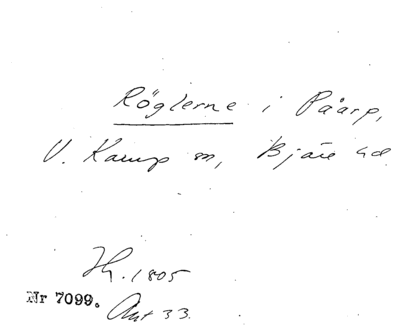 Röglerne i Påarp,
V. Karup sn, Bjäre hd
Hh. 1805
Nr 7099. Ant 33.